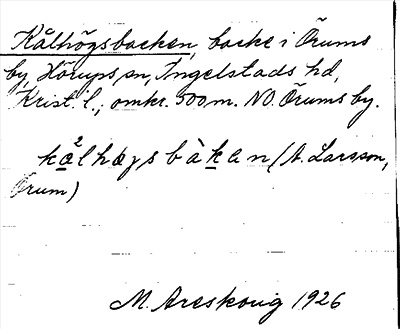 Kålhögsbacken, backe i Örums
by, Hörups sn, Ingelstads hd,
Krist. l.; omkr. 500 m. NO. Örums by.
kålhøgsbàkan (A. Larsson,
Örum)
M. Areskoug 1926